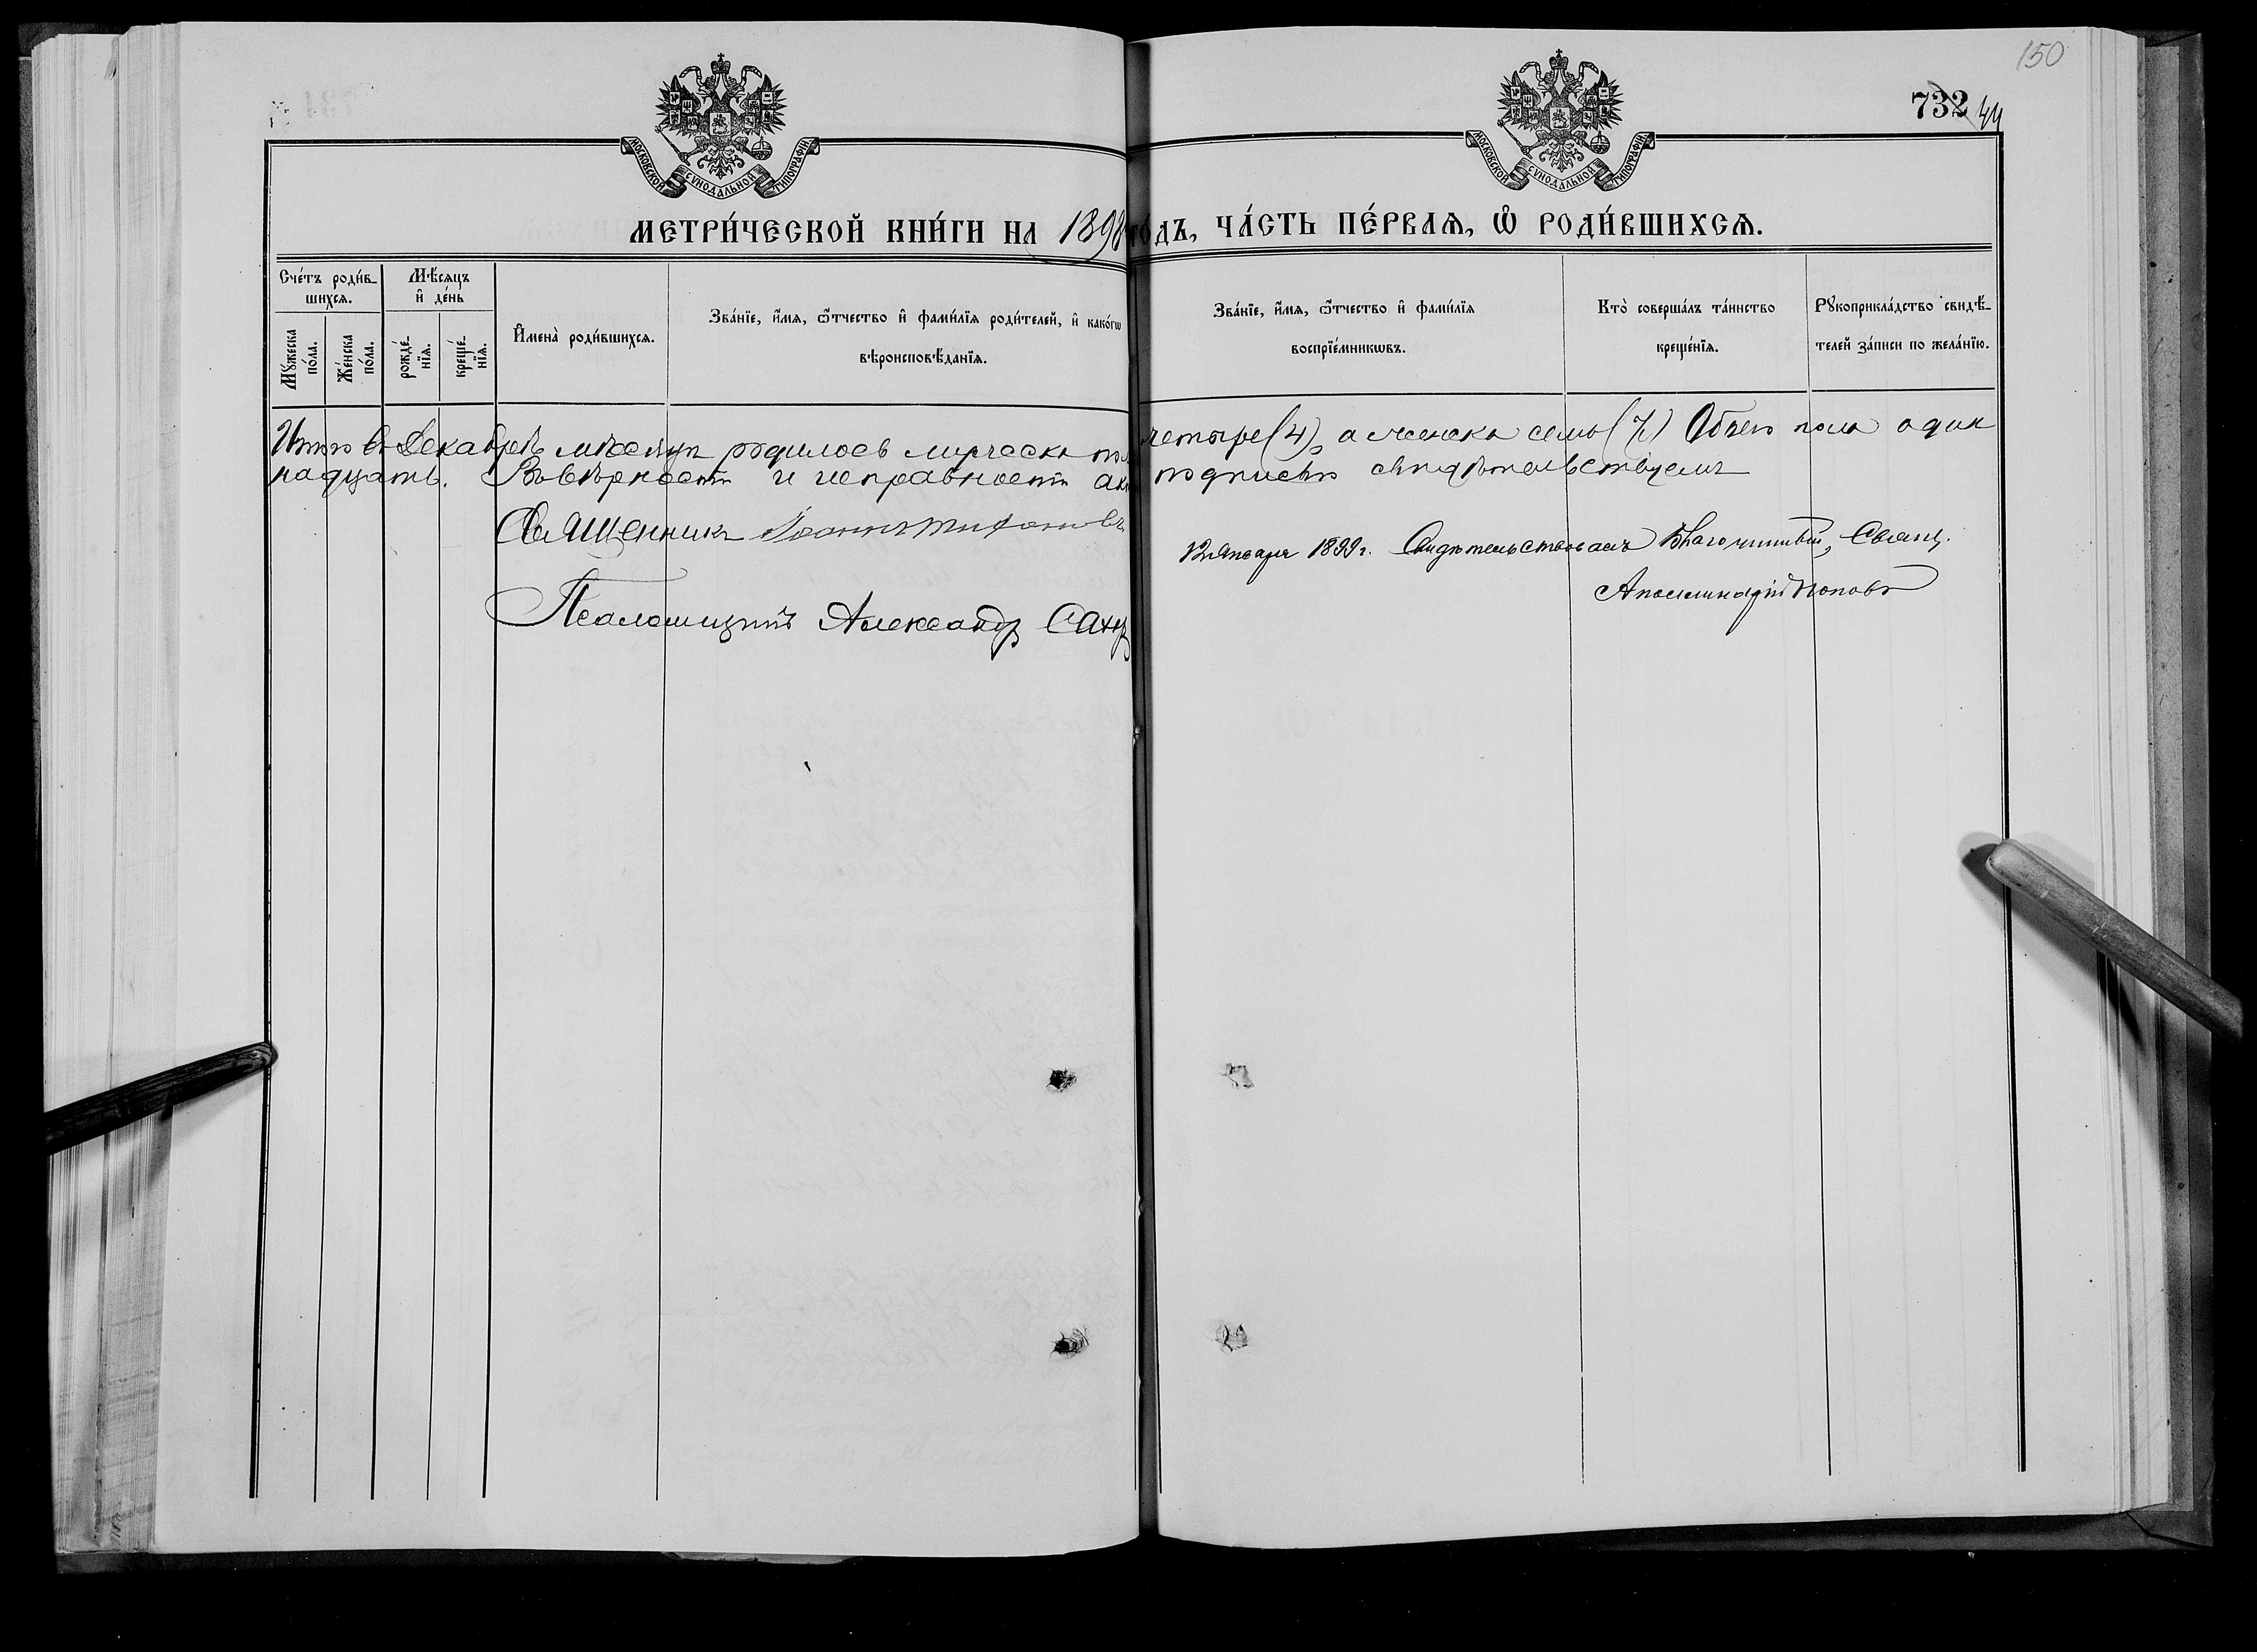 150
732 44
МОСКОВСКОЙ СѴНОДАЛЬНОЙ ТИПОГРАФІИ
МОСКОВСКОЙ СѴНОДАЛЬНОЙ ТИПОГРАФІИ
МЕТРИ́ЧЕСКОЙ КНИ́ГИ НА 1898 го́дъ, ЧА́СТЬ ПЕ́РВАЯ, Ѡ҆ РОДИ́ВШИХСЯ.
Сче́тъ роди́в-
шихся.
Мꙋ́жеска по́ла.
Же́нска по́ла.
Мѣ́сяцъ
и҆ де́нь
рожде́-
нїя.
креще́-
нїя.
И҆мена̀ роди́вшихся.
Зва́нїе, и҆́мя, ѻ҆́тчество и҆ фами́лїя роди́телей, и҆ како́гѡ
вѣроисповѣ́данїя.
Зва́нїе, и҆́мя, ѻ҆́тчество и҆ фами́лїя
воспрїе́мникѡвъ.
Кто̀ соверша́лъ та́инство
креще́нїя.
Рꙋкоприкла́дство свидѣ́-
телей за́писи по жела́нїю.
Итого въ Декабрѣ мѣсяцѣ родилось мужеска пол четыре (4), а женска семь (7) Обоего пола один
надцать. Въ вѣрности и исправности акт подписью свидѣтельствуемъ
Священникъ Іоаннъ Тихановъ
12 Января 1899 г. Свидѣтельствовалъ Благочинный, Свящ.
Аполлинарій Поповъ
Псаломщикъ Александр